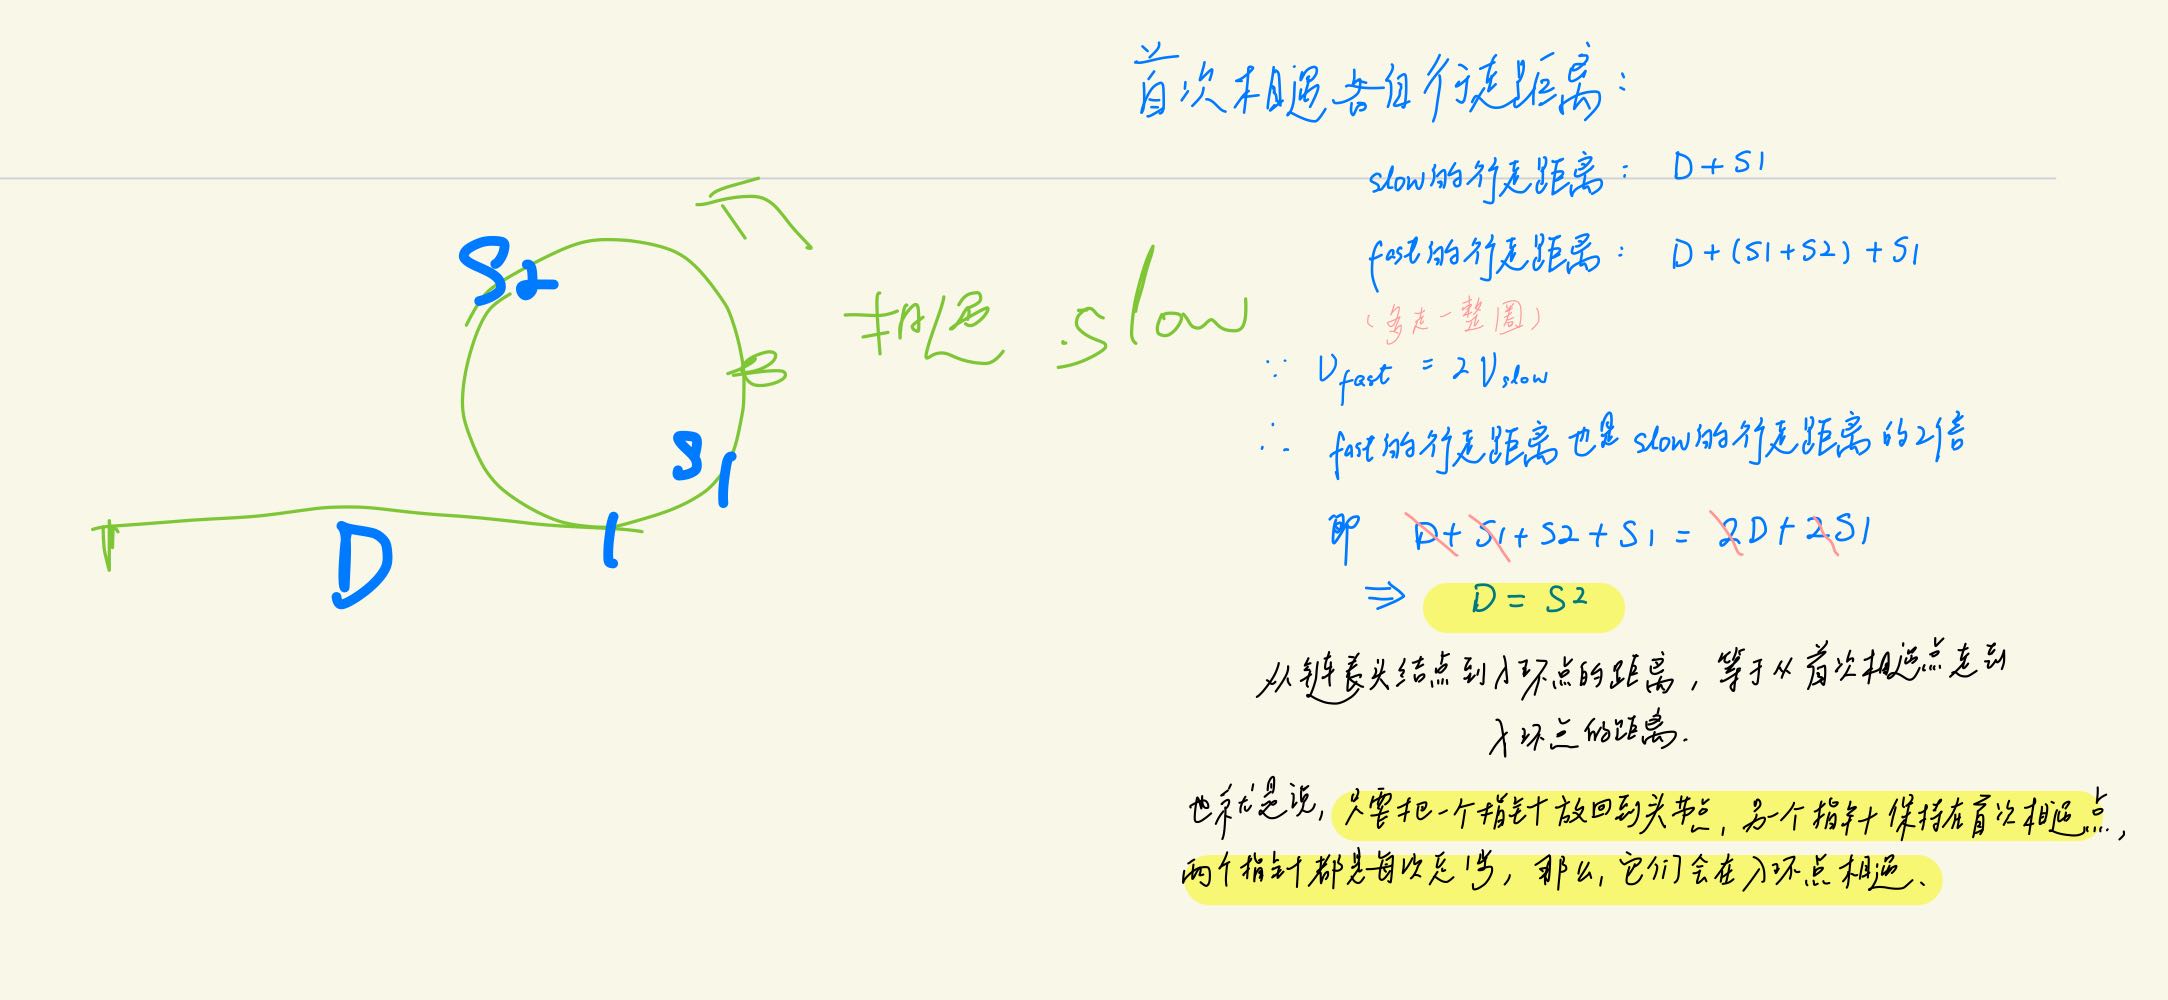 首次相遇各自行走距离：
slow的行走距离： D + S1
fast的行走距离： D + (S1+S2) + S1
（多走一整圈）
∵ V fast = 2 V slow
∴ fast的行走距离也是slow的行走距离的2倍
即 D + S1 + S2 + S1 = 2D + 2S1
⇒ D = S2
从链表头结点到入环点的距离，等于从首次相遇点走到
入环点的距离.
也就是说，只要把一个指针放回到头节点，另一个指针保持在首次相遇点，
两个指针都是每次走1步，那么，它们会在入环点相遇.
S2
相遇.slow
S1
D